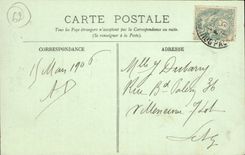 CARTE POSTALE
Tous les Pays étrangers n'acceptent pas la Correspondance au recto.
(Se renseigner à la Poste).
CORRESPONDANCE
ADRESSE
15 Mars 1906
AD
Mlle Y Dubarry
Rue Bd Palissy 36
Villeneuve s/Lot